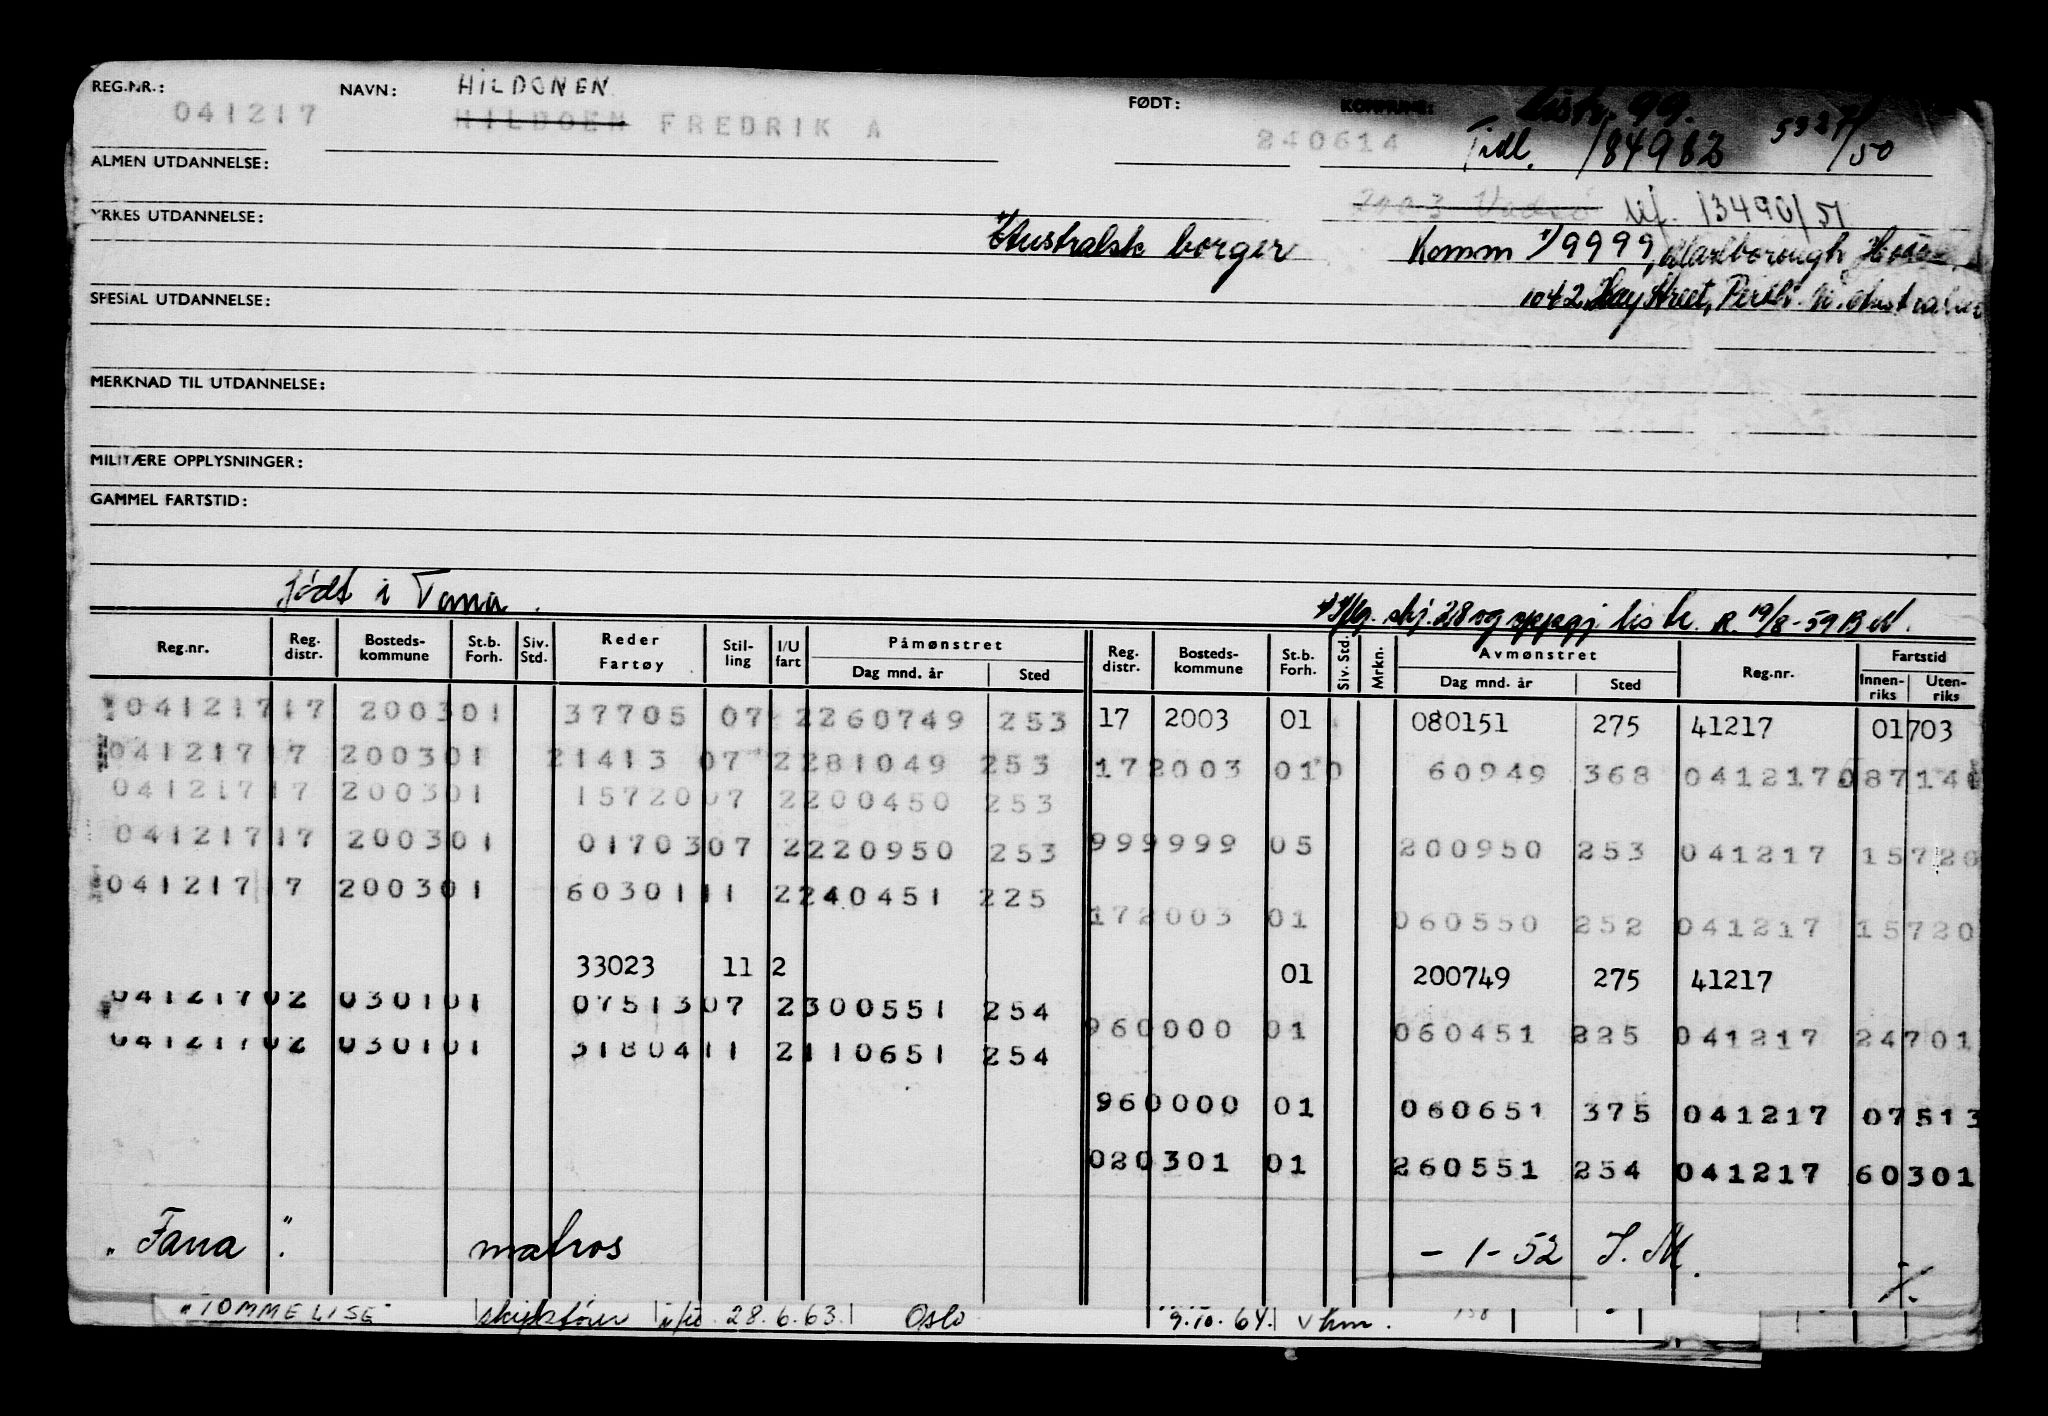 REG.NR.: 041217 NAVN: HILDONEN
HILDOEN FREDRIK A
FØDT: 240614 KOMMUNE: Distr. 99.
Tidl. 184982 5327/50
ALMEN UTDANNELSE:
2003 Vadsø Uf. 13490/51
YRKES UTDANNELSE: Australsk borger Komm 9999, Marlborough House
SPESIAL UTDANNELSE: 1042 Hay Street, Perth
MERKNAD TIL UTDANNELSE:
MILITÆRE OPPLYSNINGER:
GAMMEL FARTSTID:
født i Tana.
skj. 28 og oppgj liste. R. 19/8-59
Reg.nr. Reg. distr. Bosteds-kommune St.b. Forh. Siv. Std. Reder Fartøy Stil-ling I/U fart Påmønstret Dag mnd. år Sted Reg. distr. Bosteds-kommune St.b. Forh. Siv. Std. Mrkn. Avmønstret Dag mnd. år Sted Reg.nr. Fartstid Innen-riks Uten-riks
041217 17 2003 01 37705 07 2 260749 253 17 2003 01 080151 275 41217 01703
041217 17 2003 01 21413 07 2 281049 253 17 2003 01 0 60949 368 041217 08714
041217 17 2003 01 15720 07 2 200450 253
041217 17 2003 01 01703 07 2 220950 253 99 9999 05 200950 253 041217 15720
041217 17 2003 01 60301 11 2 240451 225
17 2003 01 060550 252 041217 15720
33023 11 2 01 200749 275 41217
041217 02 0301 01 07513 07 2 300551 254
96 0000 01 060451 225 041217 24701
041217 02 0301 01 31804 11 2 110651 254
96 0000 01 060651 375 041217 07513
02 0301 01 260551 254 041217 60301
"Fana" matros - 1 - 52 S. M.
"TOMMELISE" 28.6.63. Oslo 9.10.64.